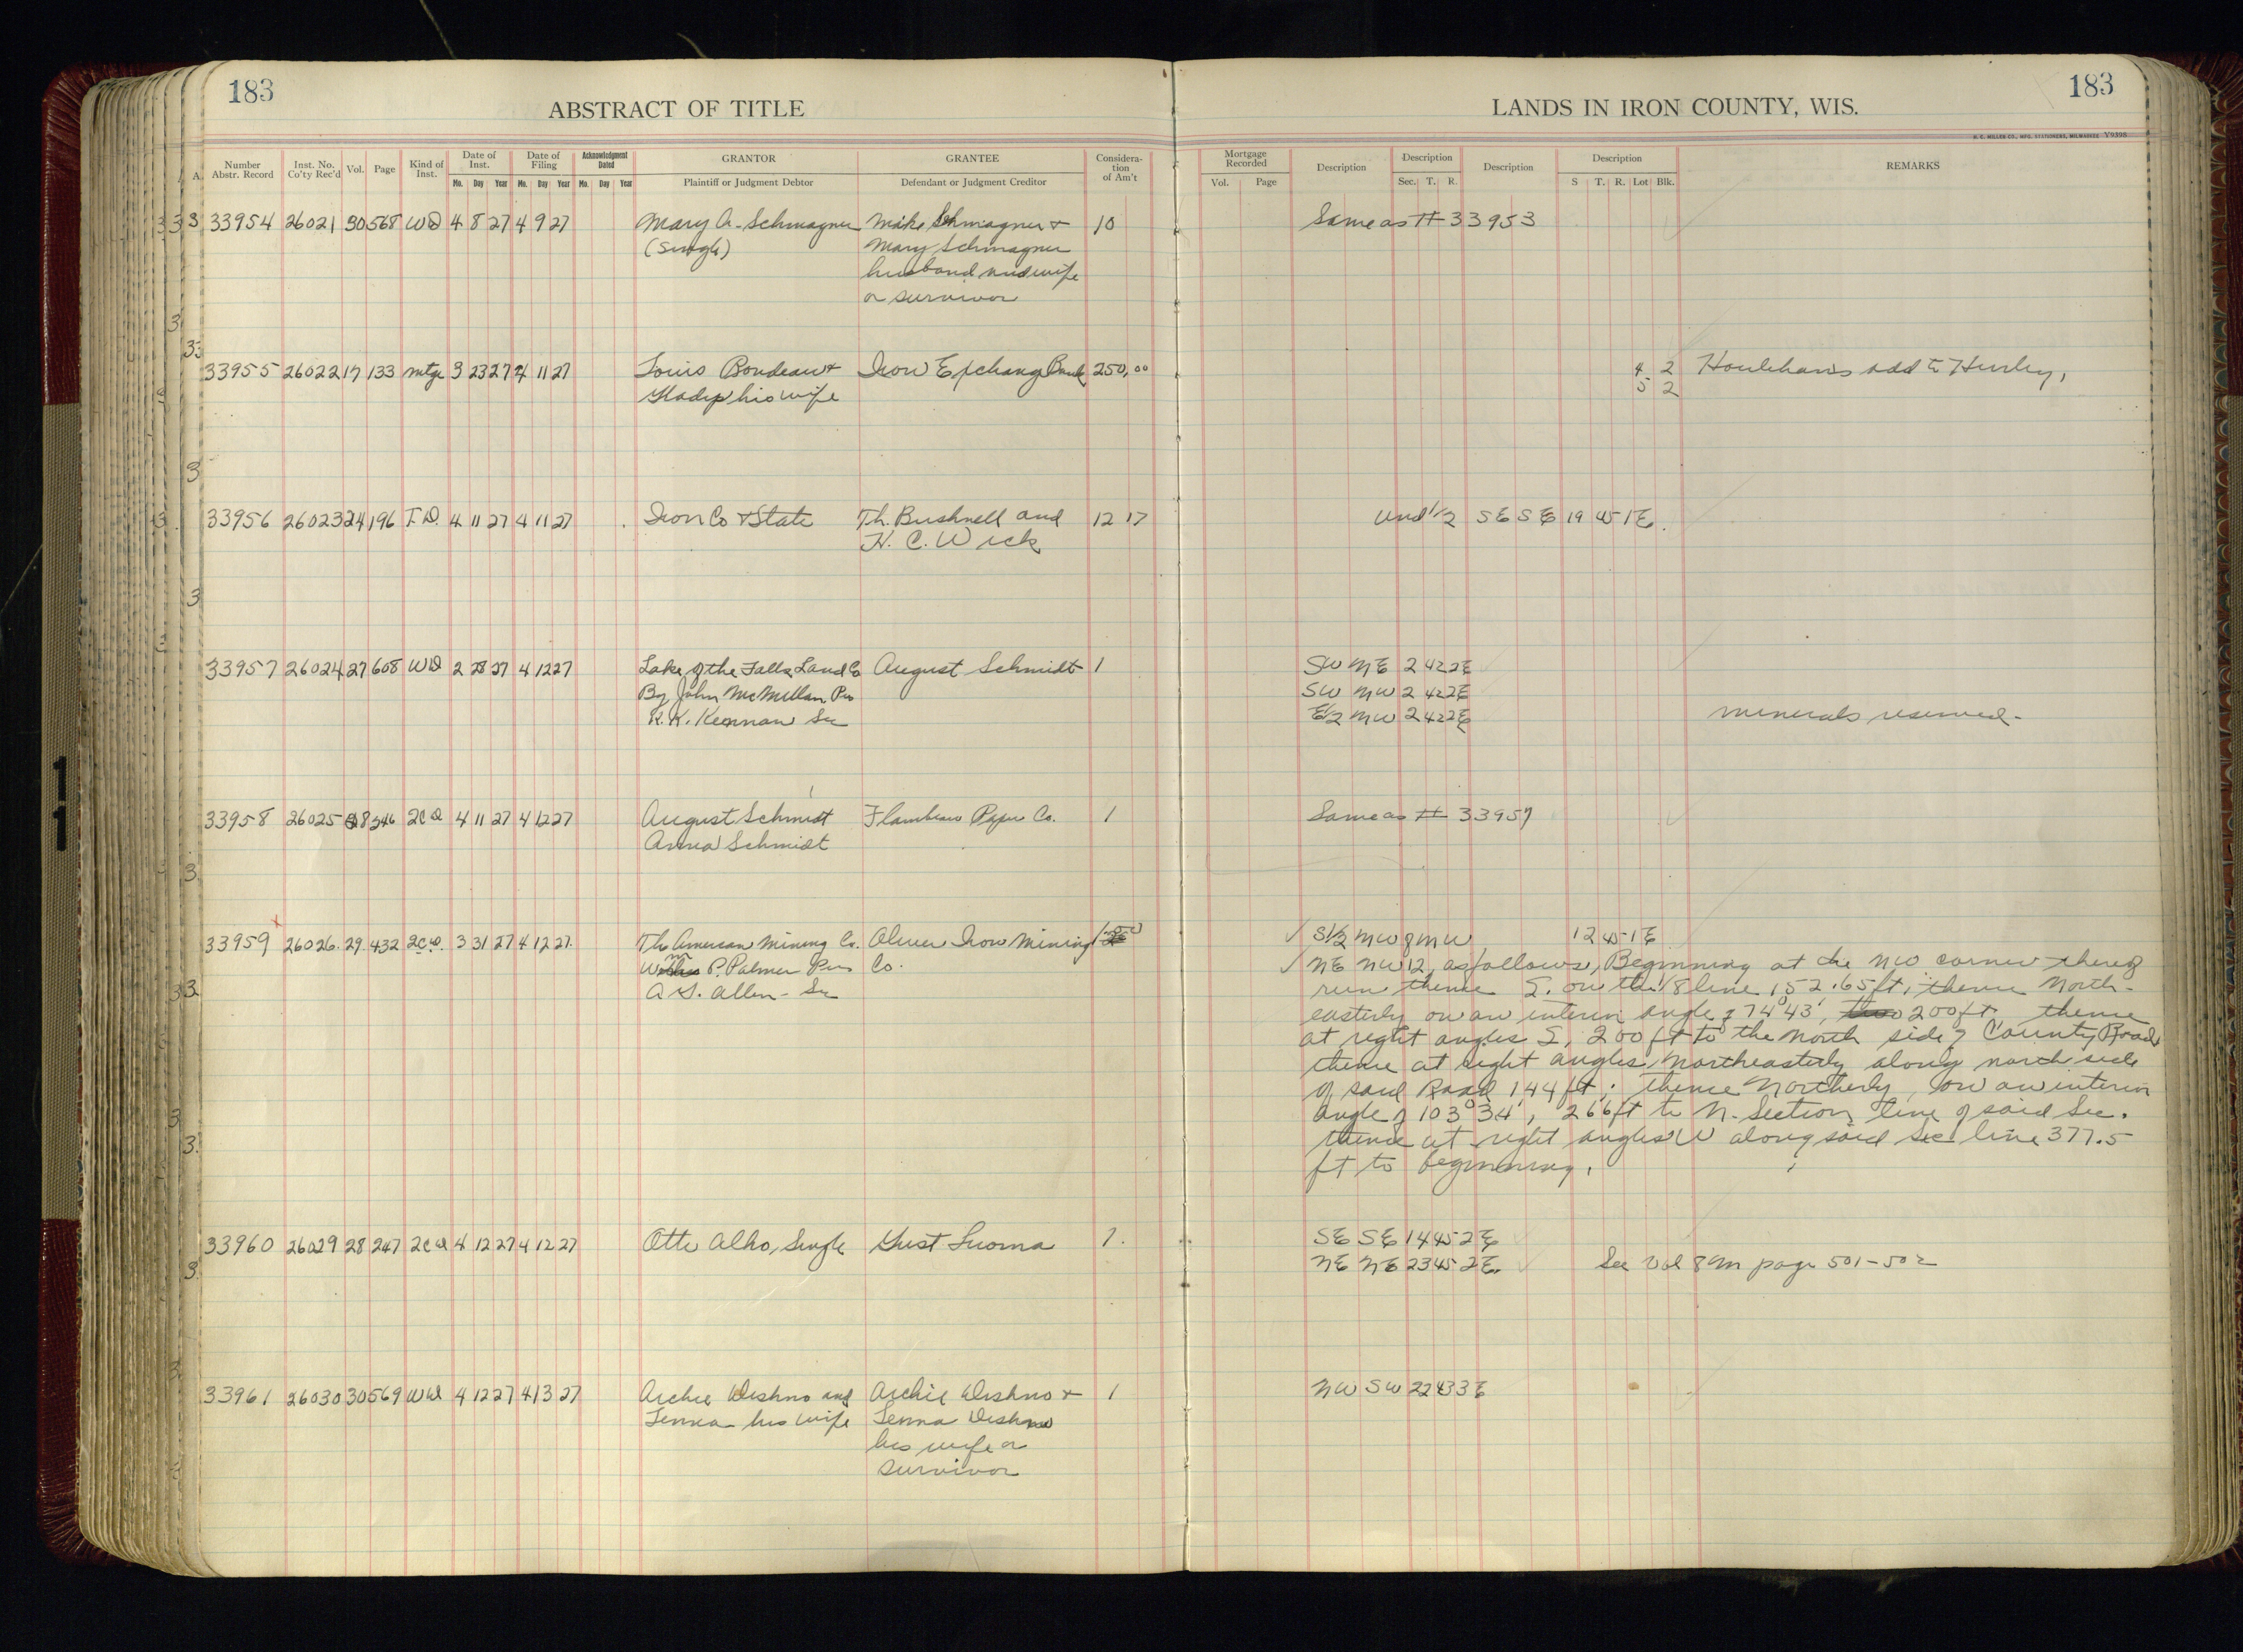 183
ABSTRACT OF TITLE
LANDS IN IRON COUNTY, WIS.
183
H. C. MILLER CO., MFG. STATIONERS, MILWAUKEE Y9398
A. Number Abstr. Record Inst. No. Co'ty Rec'd Vol. Page Kind of Inst. Date of Inst. Mo. Day Year Date of Filing Mo. Day Year Acknowledgment Dated Mo. Day Year GRANTOR Plaintiff or Judgment Debtor GRANTEE Defendant or Judgment Creditor Considera-tion of Am't
Mortgage Recorded Vol. Page Description Description Sec. T. R. Description Description S T. R. Lot Blk. REMARKS
33954 26021 30 568 WD 4 8 27 4 9 27 Mary A. Schmagner Mike Schmagner + 10 Same as # 33953
(Single) Mary Schmagner
husband and wife
or survivor
33955 26022 17 133 mtge 3 23 27 4 11 27 Louis Bondeau + Iron Exchange Bank 250.00 4 2 Houlehans add to Hurley,
Gladys his wife 5 2
33956 26023 24 196 T.D. 4 11 27 4 11 27 Iron Co + State Th. Bushnell and 12 17 und 1/2 SE SE 19 45 1E.
H. C. Wick
33957 26024 27 608 WD 2 28 27 4 12 27 Lake of the Falls Land Co August Schmidt 1 SW NE 2 42 2E
By John McMillan Pres SW NW 2 42 2E
R. K. Kennan Sec E1/2 NW 2 42 2E minerals reserved.
33958 26025 28 246 2CD 4 11 27 4 12 27 August Schmidt Flambeau Paper Co. 1 Same as # 33957
Anna Schmidt
33959 26026. 29. 432 2C.D. 3 31 27 4 12 27. The American Mining Co. Oliver Iron Mining S1/2 NW of NW 12 45 1E
Wm P. Palmer Pres Co. NE NW 12, as follows, Beginning at the NW corner thereof
A. S. Allen - Sec run thence S. on the 1/8 line 152.65 ft, thence North-
easterly on an interior angle of 74°43', 200 ft, thence
at right angles S, 200 ft to the North side of County Road
thence at right angles Northeasterly along north side
of said Road 144 ft; thence Northerly, on an interior
angle of 103°34', 266 ft to N. Section line of said Sec.
thence at right angles W along said Sec line 377.5
ft to beginning.
33960 26029 28 247 2CD 4 12 27 4 12 27 Otto Alho, Single Gust Luoma 1. SE SE 14 45 2E
NE NE 23 45 2E. See Vol 8 M page 501-502
33961 26030 30 569 WD 4 12 27 4 13 27 Archie Dishno and Archie Dishno + 1 NW SW 22 43 3E
Lenna his wife Lenna Dishno
his wife or
survivor